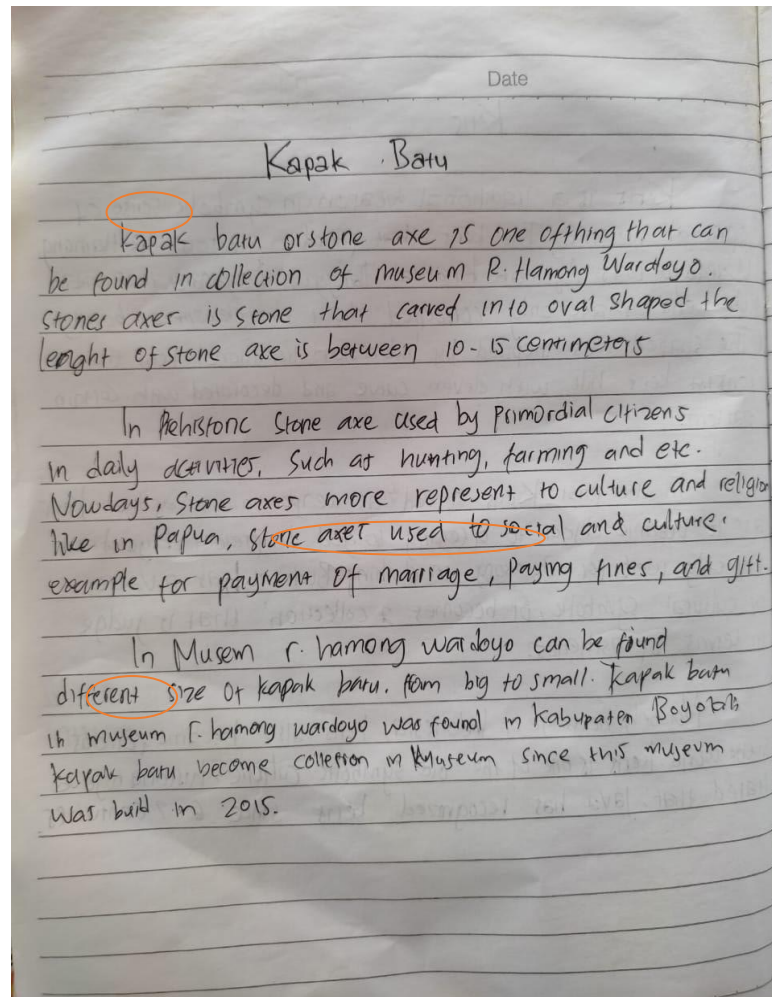 Date
Kapak Batu
kapak batu or stone axe is one of thing that can
be found in collection of museum R. Hamong Wardoyo.
Stones axes is stone that carved into oval shaped the
lenght of stone axe is between 10-15 centimeters
In Prehistoric stone axe used by primordial citizens
in daily activities, such as hunting, farming and etc.
Nowdays, stone axes more represent to culture and religion
like in Papua, stone axes used to social and culture.
example for payment of marriage, paying fines, and gift.
In Musem r. hamong wardoyo can be found
different size of kapak batu. from big to small. kapak batu
in museum r. hamong wardoyo was found in kabupaten Boyolali
kapak batu become colletion in museum since this museum
was build in 2015.